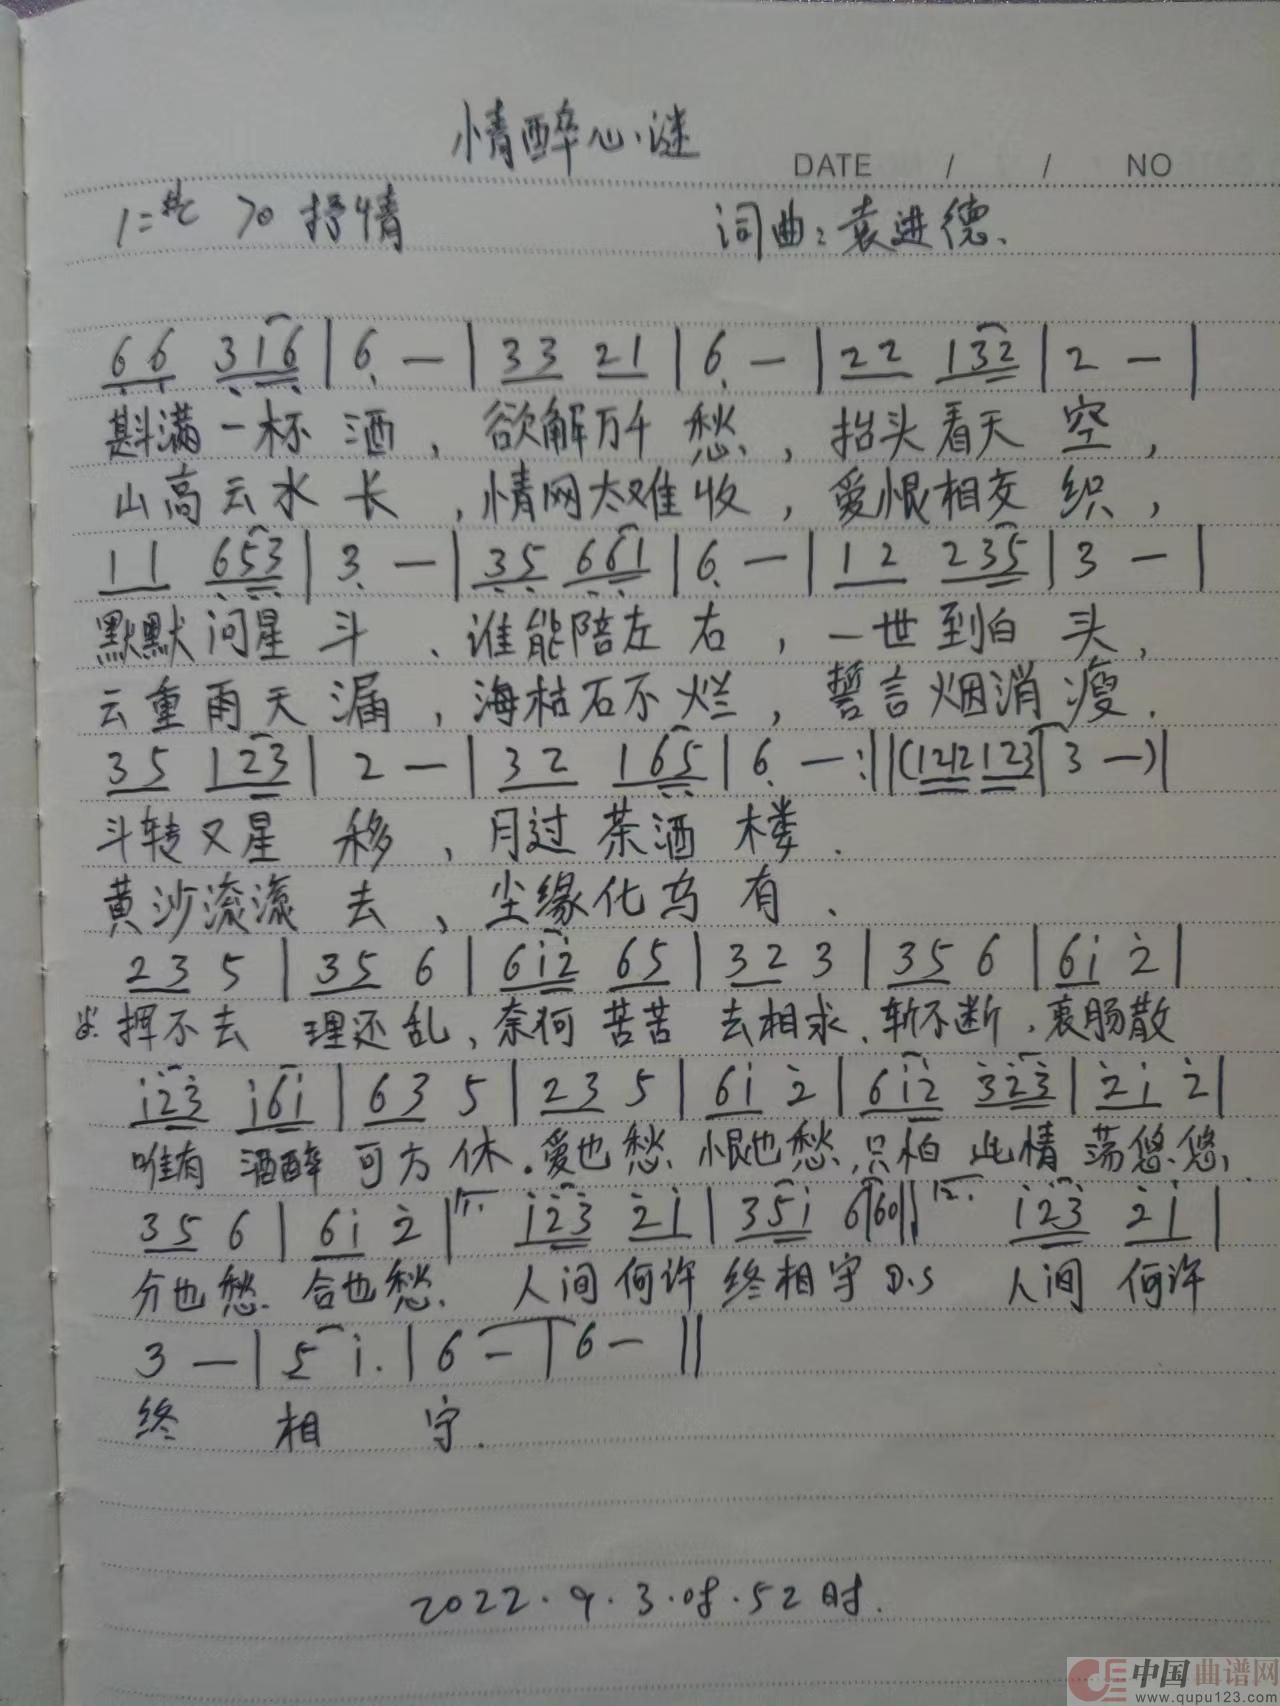 情醉心谜
DATE / / NO
1=#C 70 抒情 词曲：袁进德.
66 316 | 6 — | 33 21 | 6 — | 22 132 | 2 — |
斟满一杯 酒，欲解万千 愁，抬头看天 空，
山高云水 长，情网太难 收，爱恨相交 织，
11 653 | 3 — | 35 661 | 6 — | 12 235 | 3 — |
默默问星 斗、谁能陪左 右，一世到白 头，
云重雨天 漏，海枯石不 烂，誓言烟消 瘦.
35 123 | 2 — | 32 165 | 6 — :||(1212 123 | 3 —)|
斗转又星 移，月过茶酒 楼.
黄沙滚滚 去、尘缘化乌 有、
23 5 | 35 6 | 612 65 | 32 3 | 35 6 | 61 2 |
挥不去 理还乱，奈何 苦苦 去相求.斩不断，衷肠散
123 161 | 63 5 | 23 5 | 61 2 | 612 323 | 21 2 |
唯有 酒醉 可方 休.爱也愁 恨也愁,只怕 此情 荡悠悠,
35 6 | 61 2 | 1. 123 21 | 351 6 | 60 || 2. 123 21 |
分也愁. 合也愁. 人间 何许 终相守 D.S 人间 何许
3 — | 5 1. | 6 — | 6 — ||
终 相 守.
2022.9.3.08.52时.
中国曲谱网
www.qupu123.com